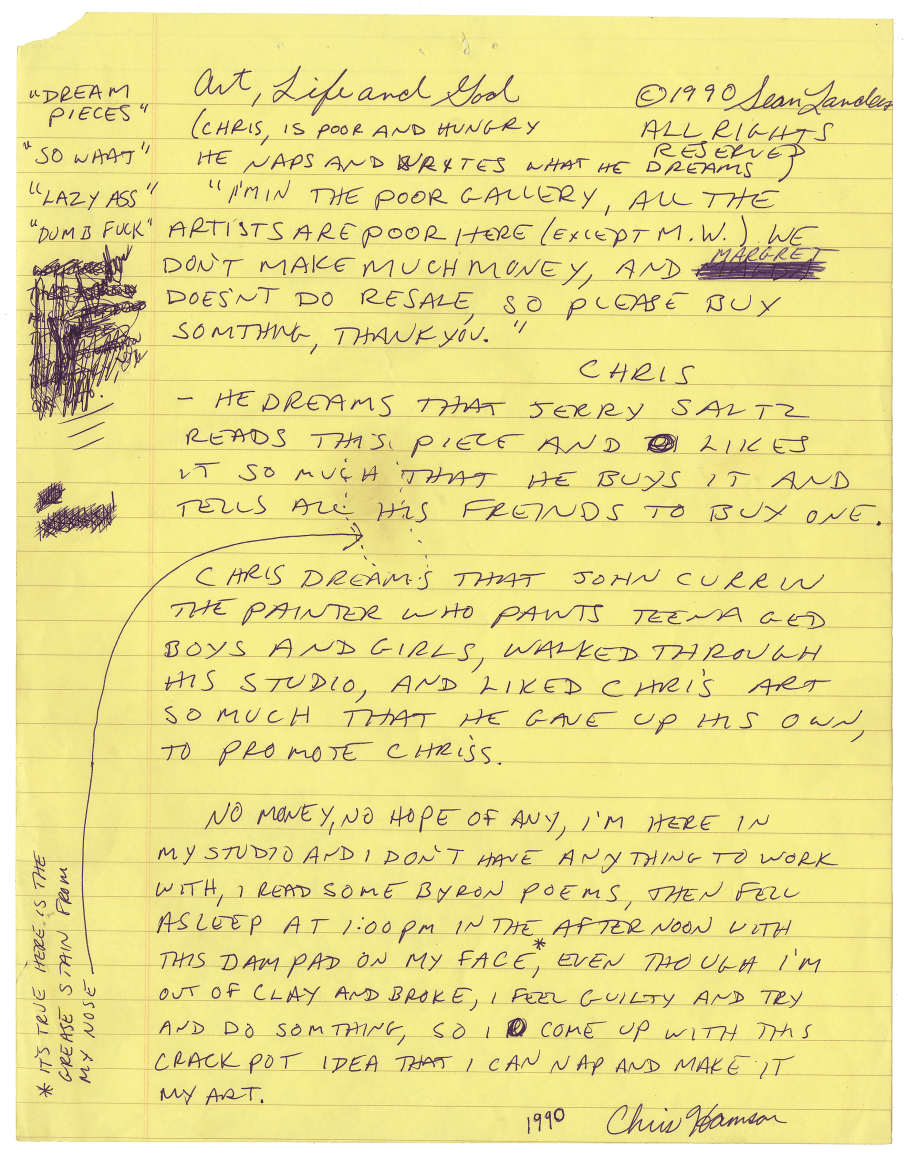 Art, Life and God
©1990 Sean Landers
ALL RIGHTS
RESERVED
(CHRIS, IS POOR AND HUNGRY
HE NAPS AND WRITES WHAT HE DREAMS)
"I'M IN THE POOR GALLERY, ALL THE
ARTISTS ARE POOR HERE (EXCEPT M.W.) WE
DON'T MAKE MUCH MONEY, AND MARGRET
DOESN'T DO RESALE, SO PLEASE BUY
SOMTHING, THANK YOU."
CHRIS
- HE DREAMS THAT JERRY SALTZ
READS THIS PIECE AND LIKES
IT SO MUCH THAT HE BUYS IT AND
TELLS ALL HIS FREINDS TO BUY ONE.
CHRIS DREAMS THAT JOHN CURRIN
THE PAINTER WHO PAINTS TEENAGED
BOYS AND GIRLS, WALKED THROUGH
HIS STUDIO, AND LIKED CHRIS ART
SO MUCH THAT HE GAVE UP HIS OWN,
TO PROMOTE CHRIS'S.
NO MONEY, NO HOPE OF ANY, I'M HERE IN
MY STUDIO AND I DON'T HAVE ANYTHING TO WORK
WITH, I READ SOME BYRON POEMS, THEN FELL
ASLEEP AT 1:00 PM IN THE AFTERNOON WITH
THIS DAMP PAD ON MY FACE*, EVEN THOUGH I'M
OUT OF CLAY AND BROKE, I FEEL GUILTY AND TRY
AND DO SOMTHING, SO I COME UP WITH THIS
CRACK POT IDEA THAT I CAN NAP AND MAKE IT
MY ART.
1990 Chris Hamson
"DREAM
PIECES"
"SO WHAT"
"LAZY ASS"
"DUMB FUCK"
* IT'S TRUE HERE IS THE
GREASE STAIN FROM
MY NOSE